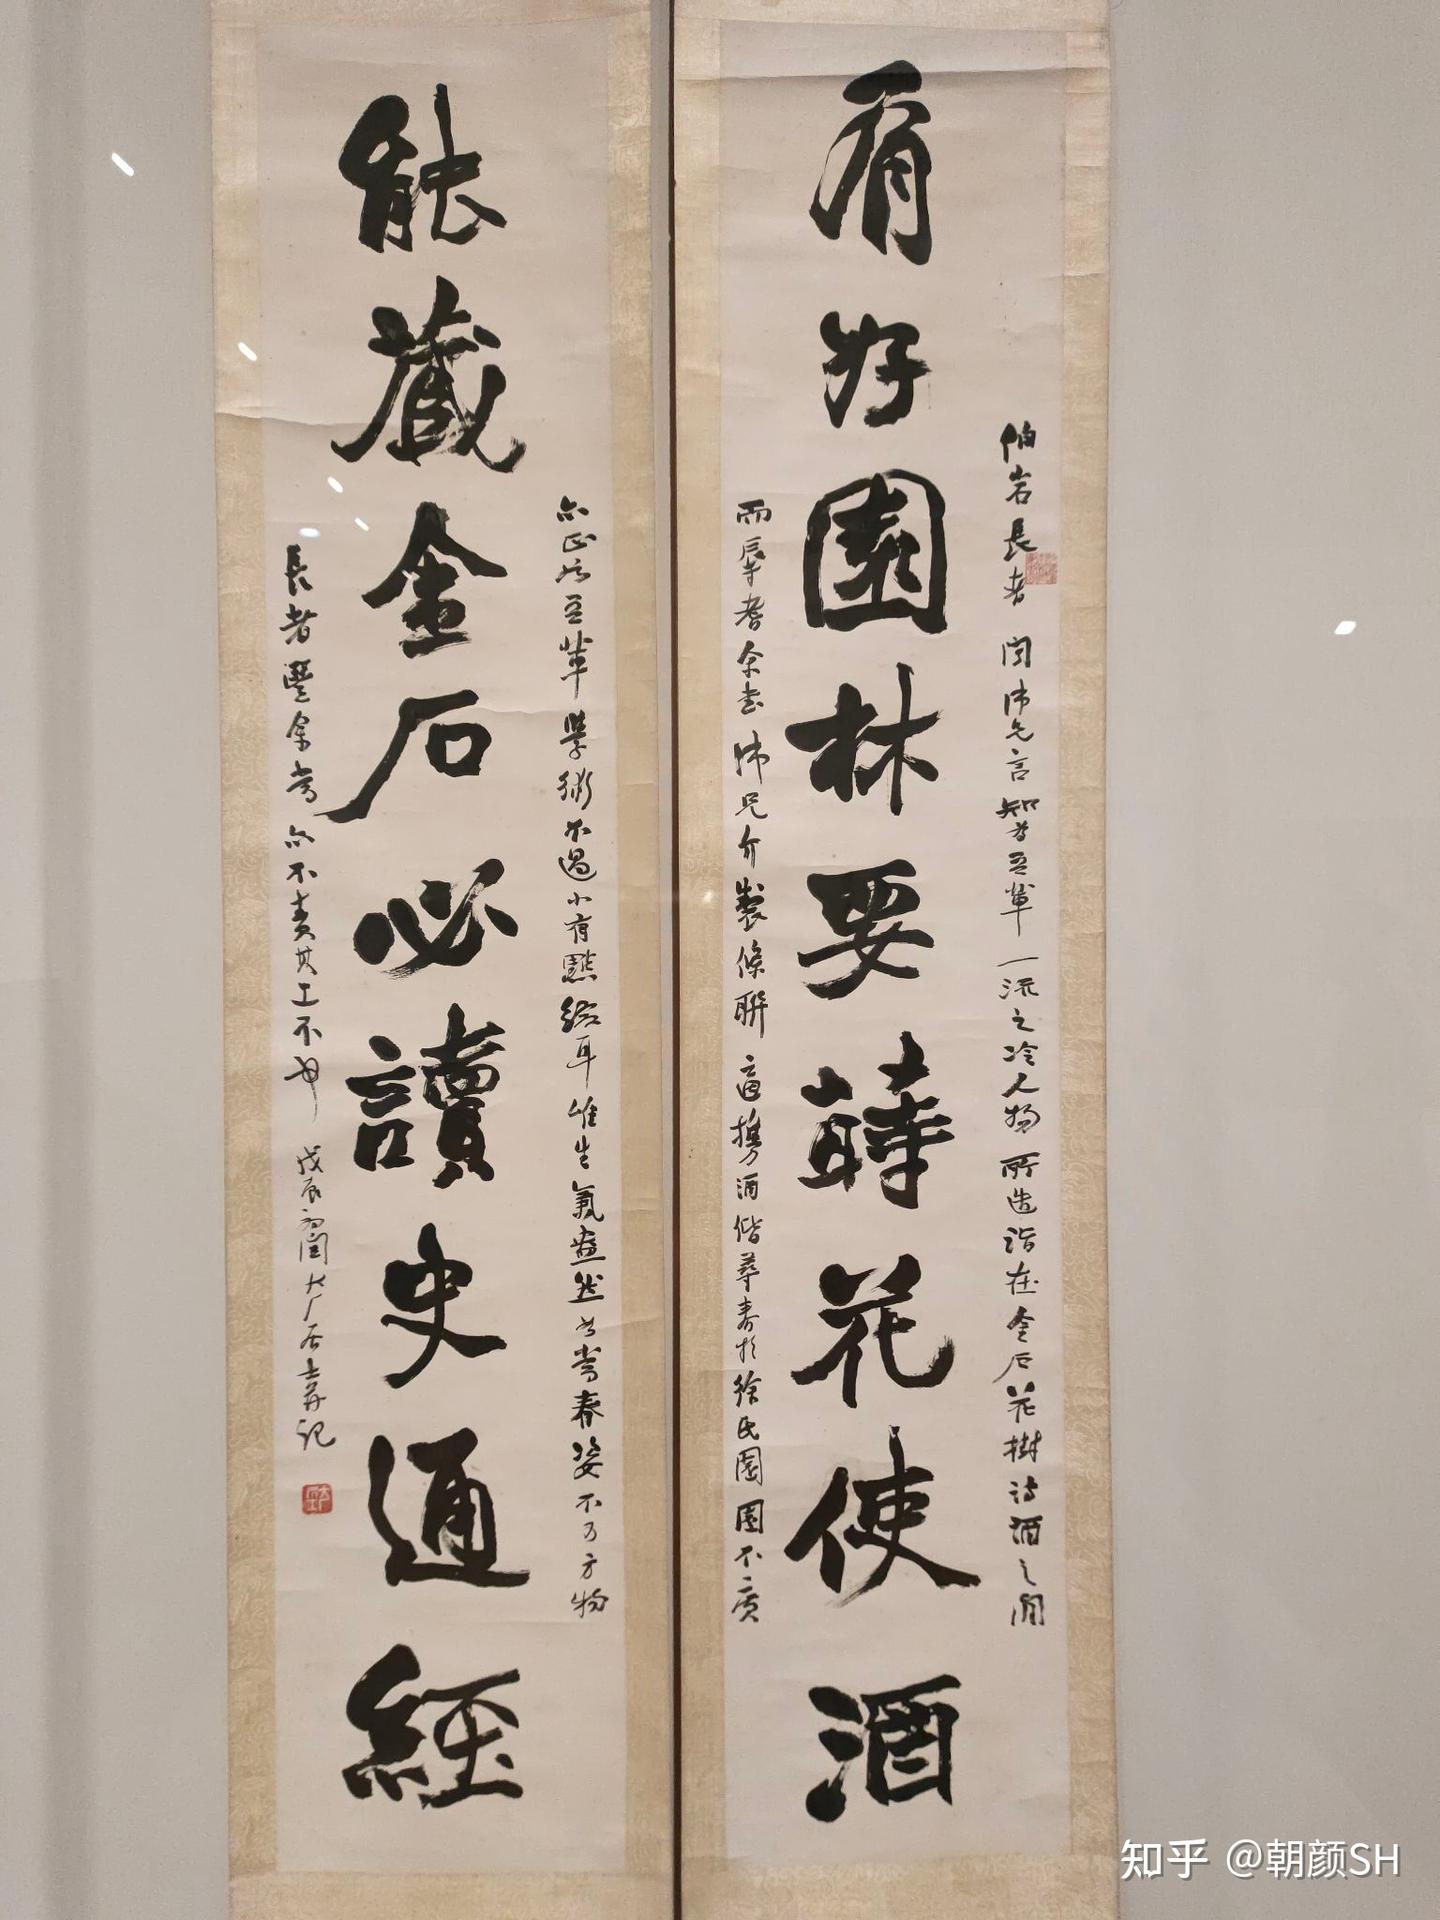 有好園林要蒔花使酒
伯岩長者 聞沛先言 知為吾輩一流之冷人物 所造詣在金石花樹詩酒之間
而辱耆余書 沛兄介製條聯 啇攜酒偕尋春於徐氏園 園不廣
能藏金石必讀史通經
亦正如吾輩學術不過小有點綴耳 惟生氣盎然 春姿不乃方物
長者 余 亦不責其工不也
戊辰初閏大厂居士弄記
知乎 @朝颜SH